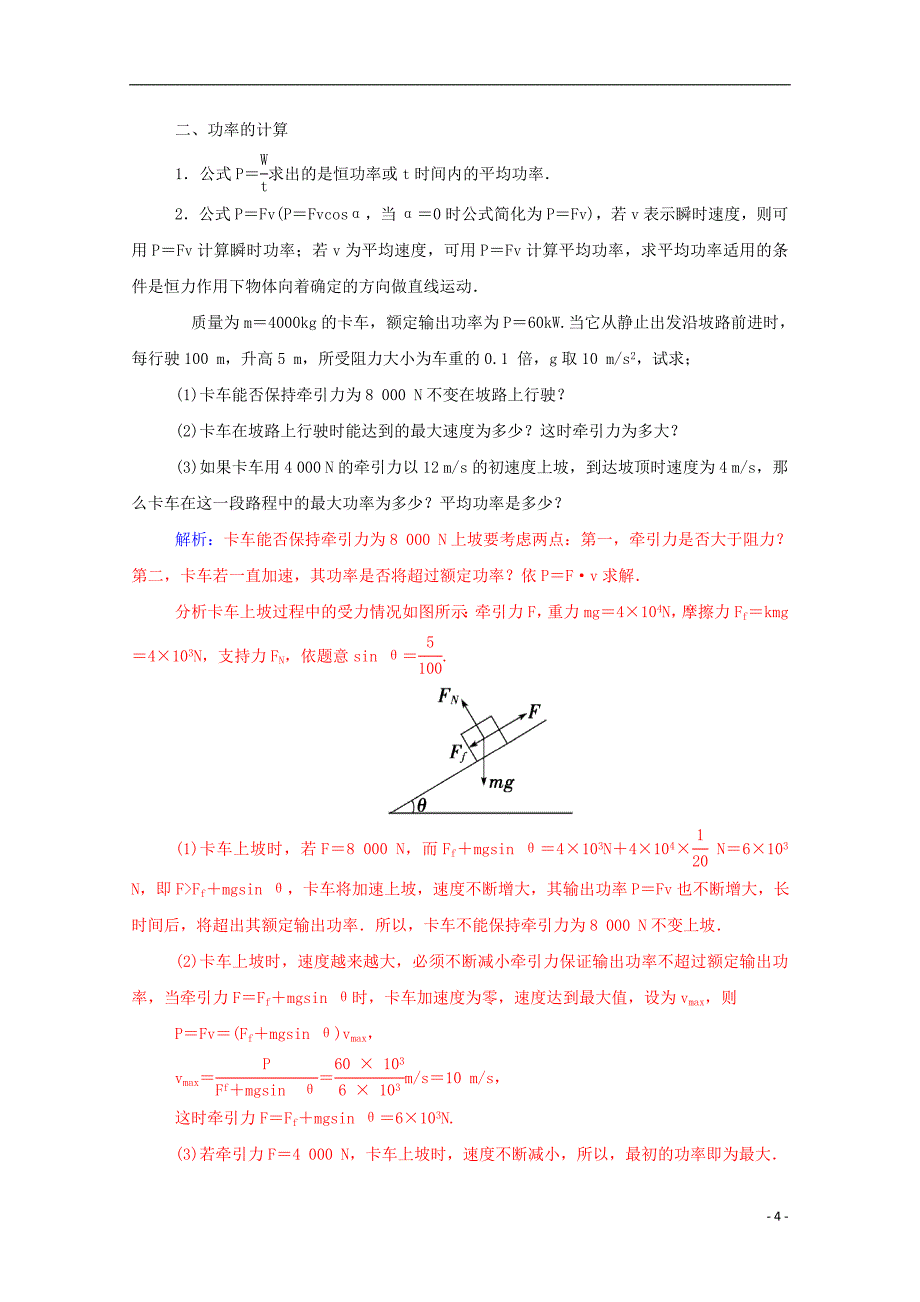 二、功率的计算
1．公式P＝W/t求出的是恒功率或t时间内的平均功率．
2．公式P＝Fv(P＝Fvcosα，当 α＝0时公式简化为P＝Fv)，若v表示瞬时速度，则可
用P＝Fv计算瞬时功率；若v为平均速度，可用P＝Fv计算平均功率，求平均功率适用的条
件是恒力作用下物体向着确定的方向做直线运动．
质量为m＝4000kg的卡车，额定输出功率为P＝60kW.当它从静止出发沿坡路前进时，
每行驶100 m，升高5 m，所受阻力大小为车重的0.1 倍，g取10 m/s²，试求；
(1)卡车能否保持牵引力为8 000 N不变在坡路上行驶？
(2)卡车在坡路上行驶时能达到的最大速度为多少？这时牵引力为多大？
(3)如果卡车用4 000 N的牵引力以12 m/s的初速度上坡，到达坡顶时速度为4 m/s，那
么卡车在这一段路程中的最大功率为多少？平均功率是多少？
解析：卡车能否保持牵引力为8 000 N上坡要考虑两点：第一，牵引力是否大于阻力？
第二，卡车若一直加速，其功率是否将超过额定功率？依P＝F·v求解．
分析卡车上坡过程中的受力情况如图所示：牵引力F，重力mg＝4×10⁴N，摩擦力F_f＝kmg
＝4×10³N，支持力F_N，依题意sin θ＝5/100.
F_N
F
F_f
mg
θ
(1)卡车上坡时，若F＝8 000 N，而F_f＋mgsin θ＝4×10³N＋4×10⁴×1/20 N＝6×10³
N，即F>F_f＋mgsin θ，卡车将加速上坡，速度不断增大，其输出功率P＝Fv也不断增大，长
时间后，将超出其额定输出功率．所以，卡车不能保持牵引力为8 000 N不变上坡．
(2)卡车上坡时，速度越来越大，必须不断减小牵引力保证输出功率不超过额定输出功
率，当牵引力F＝F_f＋mgsin θ时，卡车加速度为零，速度达到最大值，设为v_max，则
P＝Fv＝(F_f＋mgsin θ)v_max，
v_max＝P/(F^f＋mgsin θ)＝(60 × 10³)/(6 × 10³)m/s＝10 m/s，
这时牵引力F＝F_f＋mgsin θ＝6×10³N.
(3)若牵引力F＝4 000 N，卡车上坡时，速度不断减小，所以，最初的功率即为最大．
- 4 -